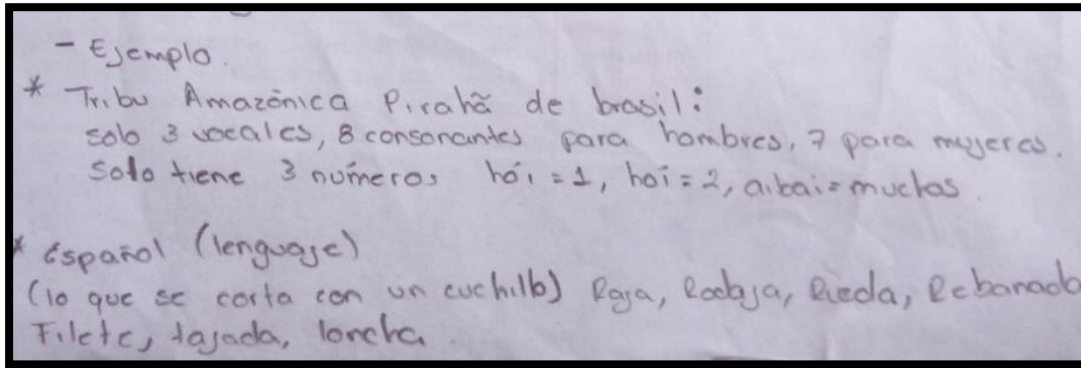 - Ejemplo.
* Tribu Amazónica Pirahã de brasil:
solo 3 vocales, 8 consonantes para hombres, 7 para mujeres.
Solo tiene 3 números hói = 1, hoí = 2, aibai = muchos.
* Español (lenguaje)
(lo que se corta con un cuchillo) Raja, Rodaja, Rueda, Rebanada
Filete, tajada, loncha.